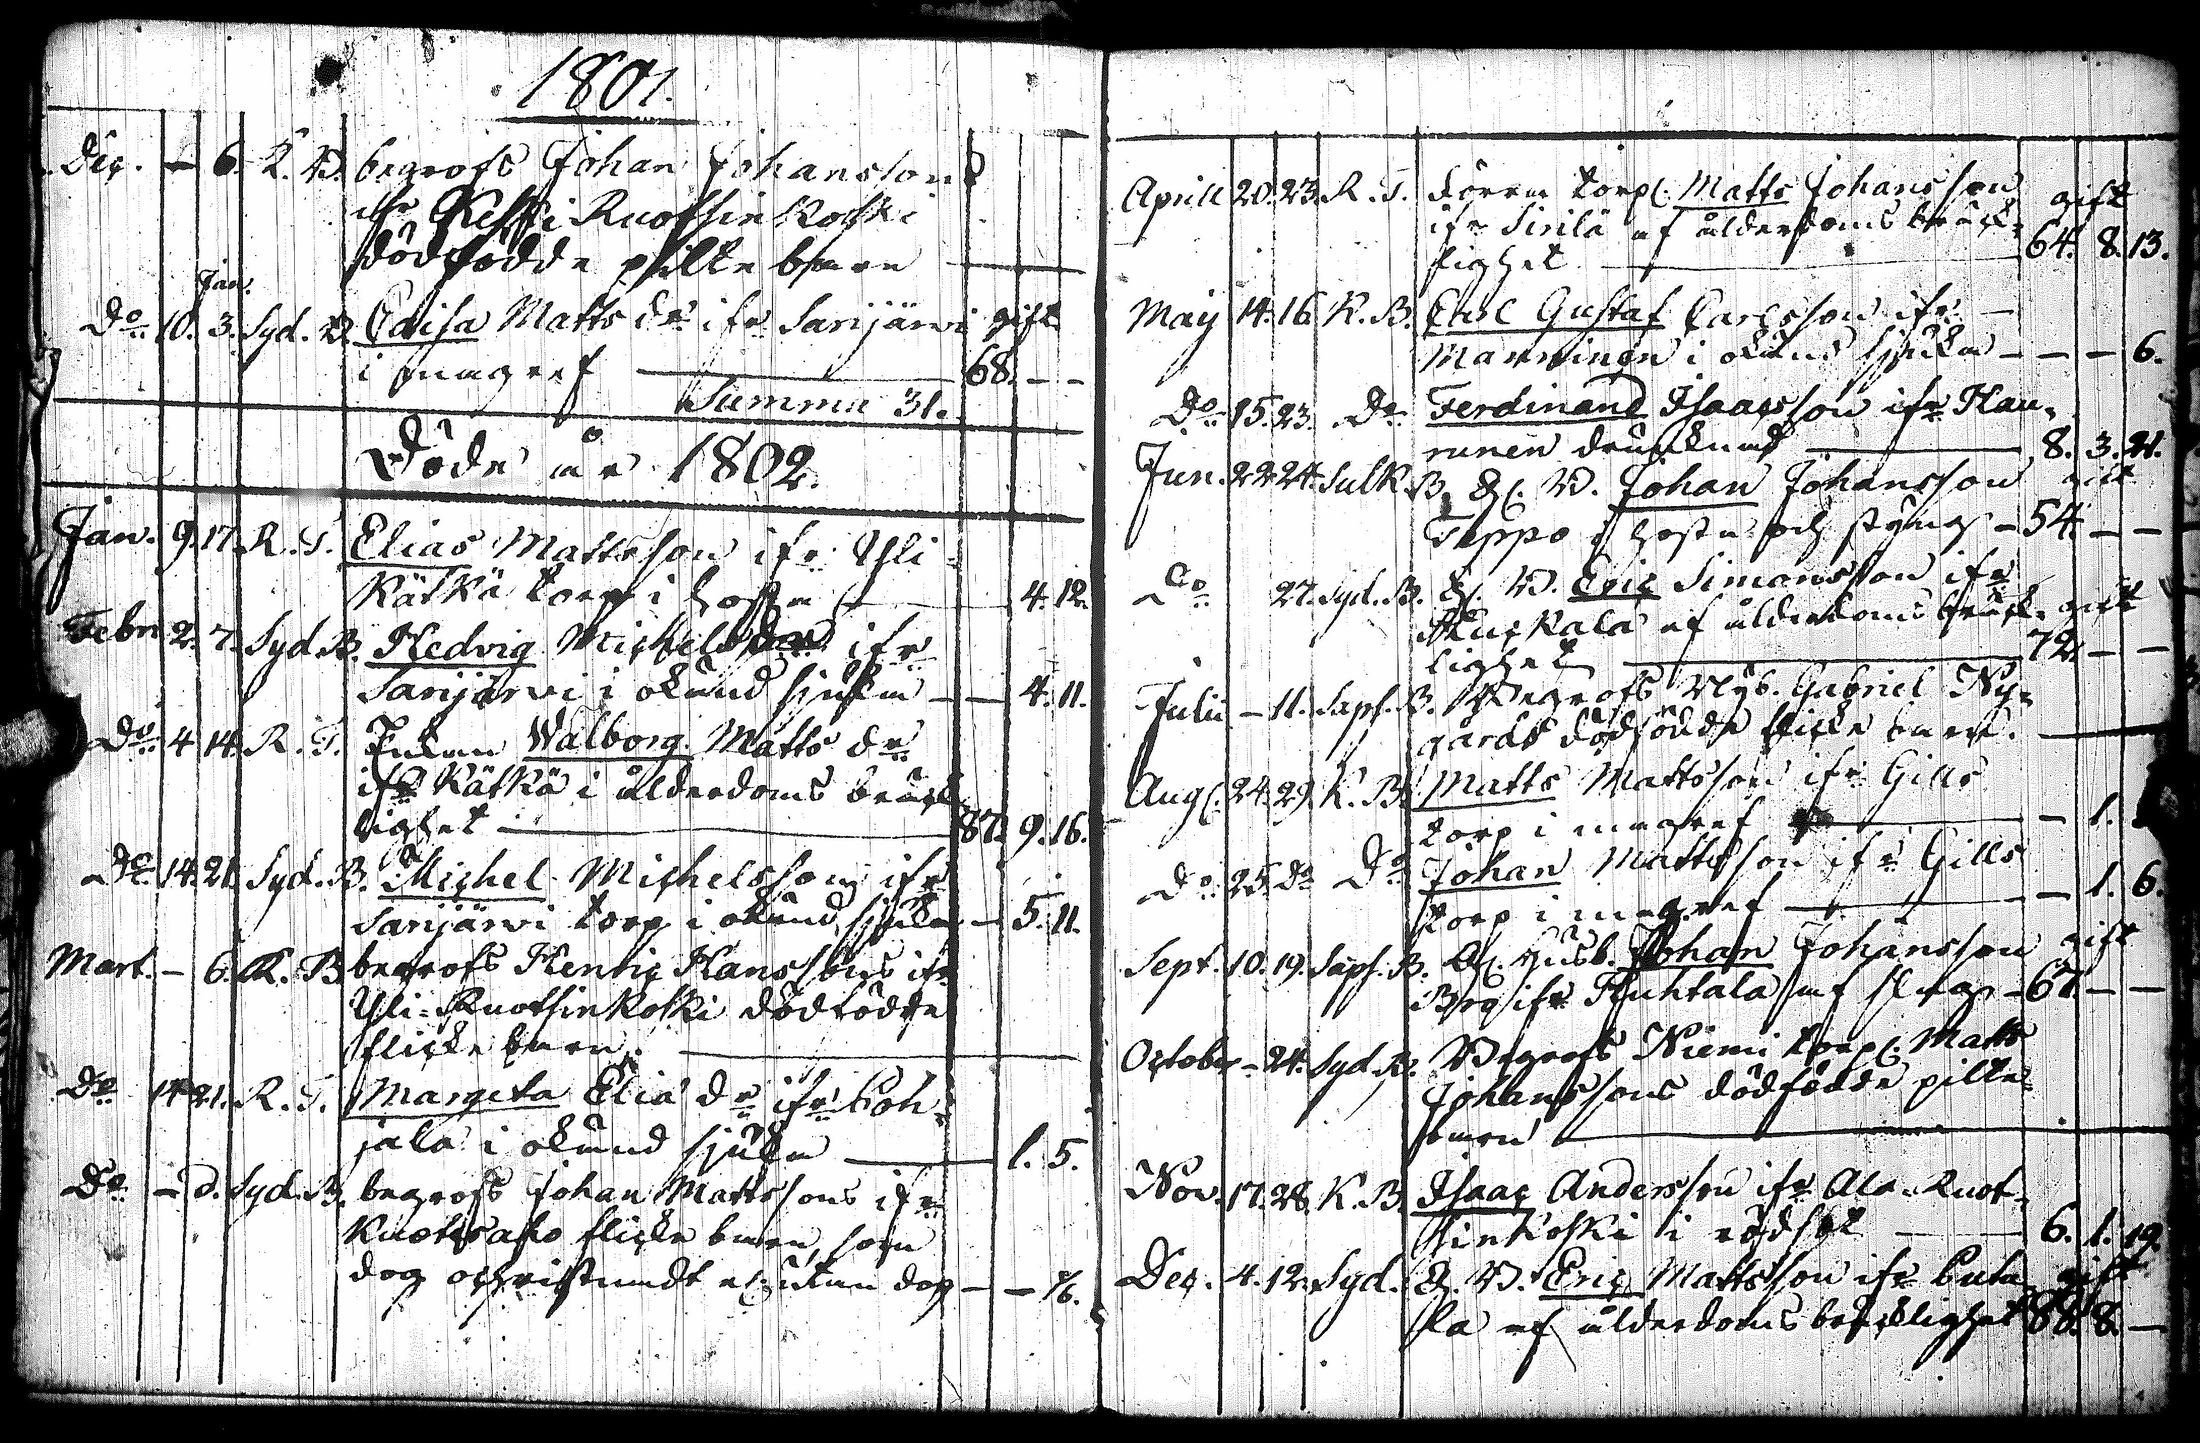 1801.
Dec. - 6. K. B. begrofs Johan Johansson
ifr Keski Ruotsinkoski
dödfödde pilte barn
Jan.
Do 10. 3. Syd. B. Caisa Matts dr ifr Sarijärvi gift
i magref 68. - -
Summa 31.
Döde år 1802.
Jan. 9. 17. R. T. Elias Mattsson ifr Yli-
Kätkä torp i hosta 4. 12.
Febr. 2. 7. Syd. B. Hedvig Michels dr ifr
Sarijärvi i okänd sjukdom - - 4. 11.
Do 4 14. R. T. Enkan Walborg Matts dr
ifr Kätkä i ålderdoms bräck
lighet 87. 9. 16.
Do 14. 21. Syd. B. Michel Michelsson ifr
Sarijärvi torp i okänd sjukdom - 5. 11.
Mart. - 6. K. B. begrofs Henric Hanssons ifr
Yli-Ruotsinkoski dödfödde
flicke barn.
Do 14 21. R. T. Margeta Elia dr ifr Poh-
jala i okänd sjukdom 1. 5.
Do - d. Syd. B. begrofs Johan Mattssons ifr
flicke barn, som
dog utan dop - -
Aprill 20. 23. R. T. Förra torp. Matts Johansson gift
ifr Sirilä af ålderdoms bräck-
lighet 64. 8. 13.
May 14. 16. K. B. Carl Gustaf Carlsson ifr
Manninen i okänd sjukdom - - - 6.
Do 15. 23. Do Ferdinand Isaacsson ifr Hau-
runen drunknad 8. 3. 21.
Jun. 22. 24. Sulk. B. Gl. B. Johan Johansson gift
Teppo i hosta och styng - 54. - -
Do 27. Syd. B. Gl. B. Eric Simonsson ifr
af ålderdoms bräck- gift
lighet 72. - -
Julii - 11. Saps. B. Begrofs Nyb. Gabriel Ny-
gårds dödfödde flicke barn.
Aug. 24. 29. K. B. Matts Mattsson ifr Gills
torp i magref - 1.
Do 25. Do Do Johan Mattsson ifr Gills
torp i magref - 1. 6.
Sept. 10. 19. Saps. B. Gl. Husb. Johan Johansson gift
Brg ifr Huhtala af slag - 67. - -
October - 24. Syd. B. Begrofs Niemi torp. Matts
Johanssons dödfödde pilte-
barn
Nov. 17. 28. K. B. Isaac Andersson ifr Ala-Ruot-
sinkoski i rödsot 6. 1. 19.
Dec. 4. 12. Syd. Gl. B. Eric Mattsson ifr Puta gift
la af ålderdoms bräcklighet 80. 8. -